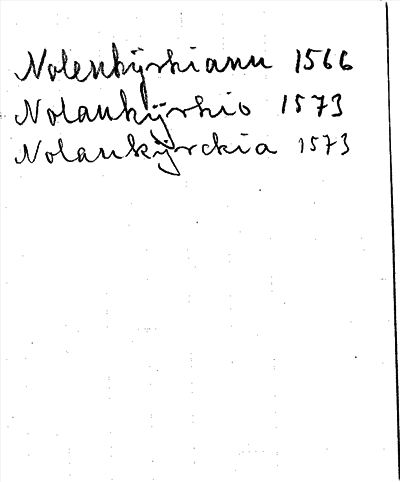 Nolenkÿrkianu 1566
Nolankÿrkio 1573
Nolankÿrckia 1573